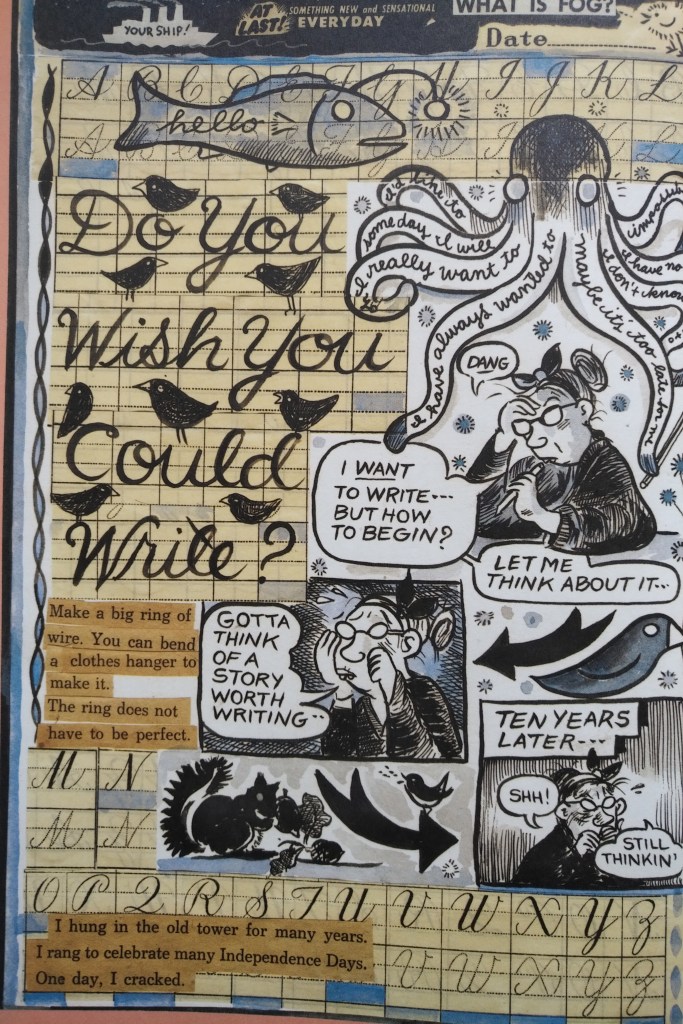 YOUR SHIP!
AT LAST!
SOMETHING NEW and SENSATIONAL
EVERYDAY
WHAT IS FOG?
Date
A B C D E F G H I J K L
hello
Do You
Wish You
Could
Write?
I'd like to
someday I will
I really want to
I have always wanted to
maybe it's too late for me
I don't know
I have no
DANG
I WANT
TO WRITE---
BUT HOW
TO BEGIN?
LET ME
THINK ABOUT IT--
Make a big ring of
wire. You can bend
a clothes hanger to
make it.
The ring does not
have to be perfect.
GOTTA
THINK
OF A
STORY
WORTH
WRITING--
TEN YEARS
LATER---
SHH!
STILL
THINKIN'
M N
M N
O P Q R S T U V W X Y Z
V W X Y Z
I hung in the old tower for many years.
I rang to celebrate many Independence Days.
One day, I cracked.